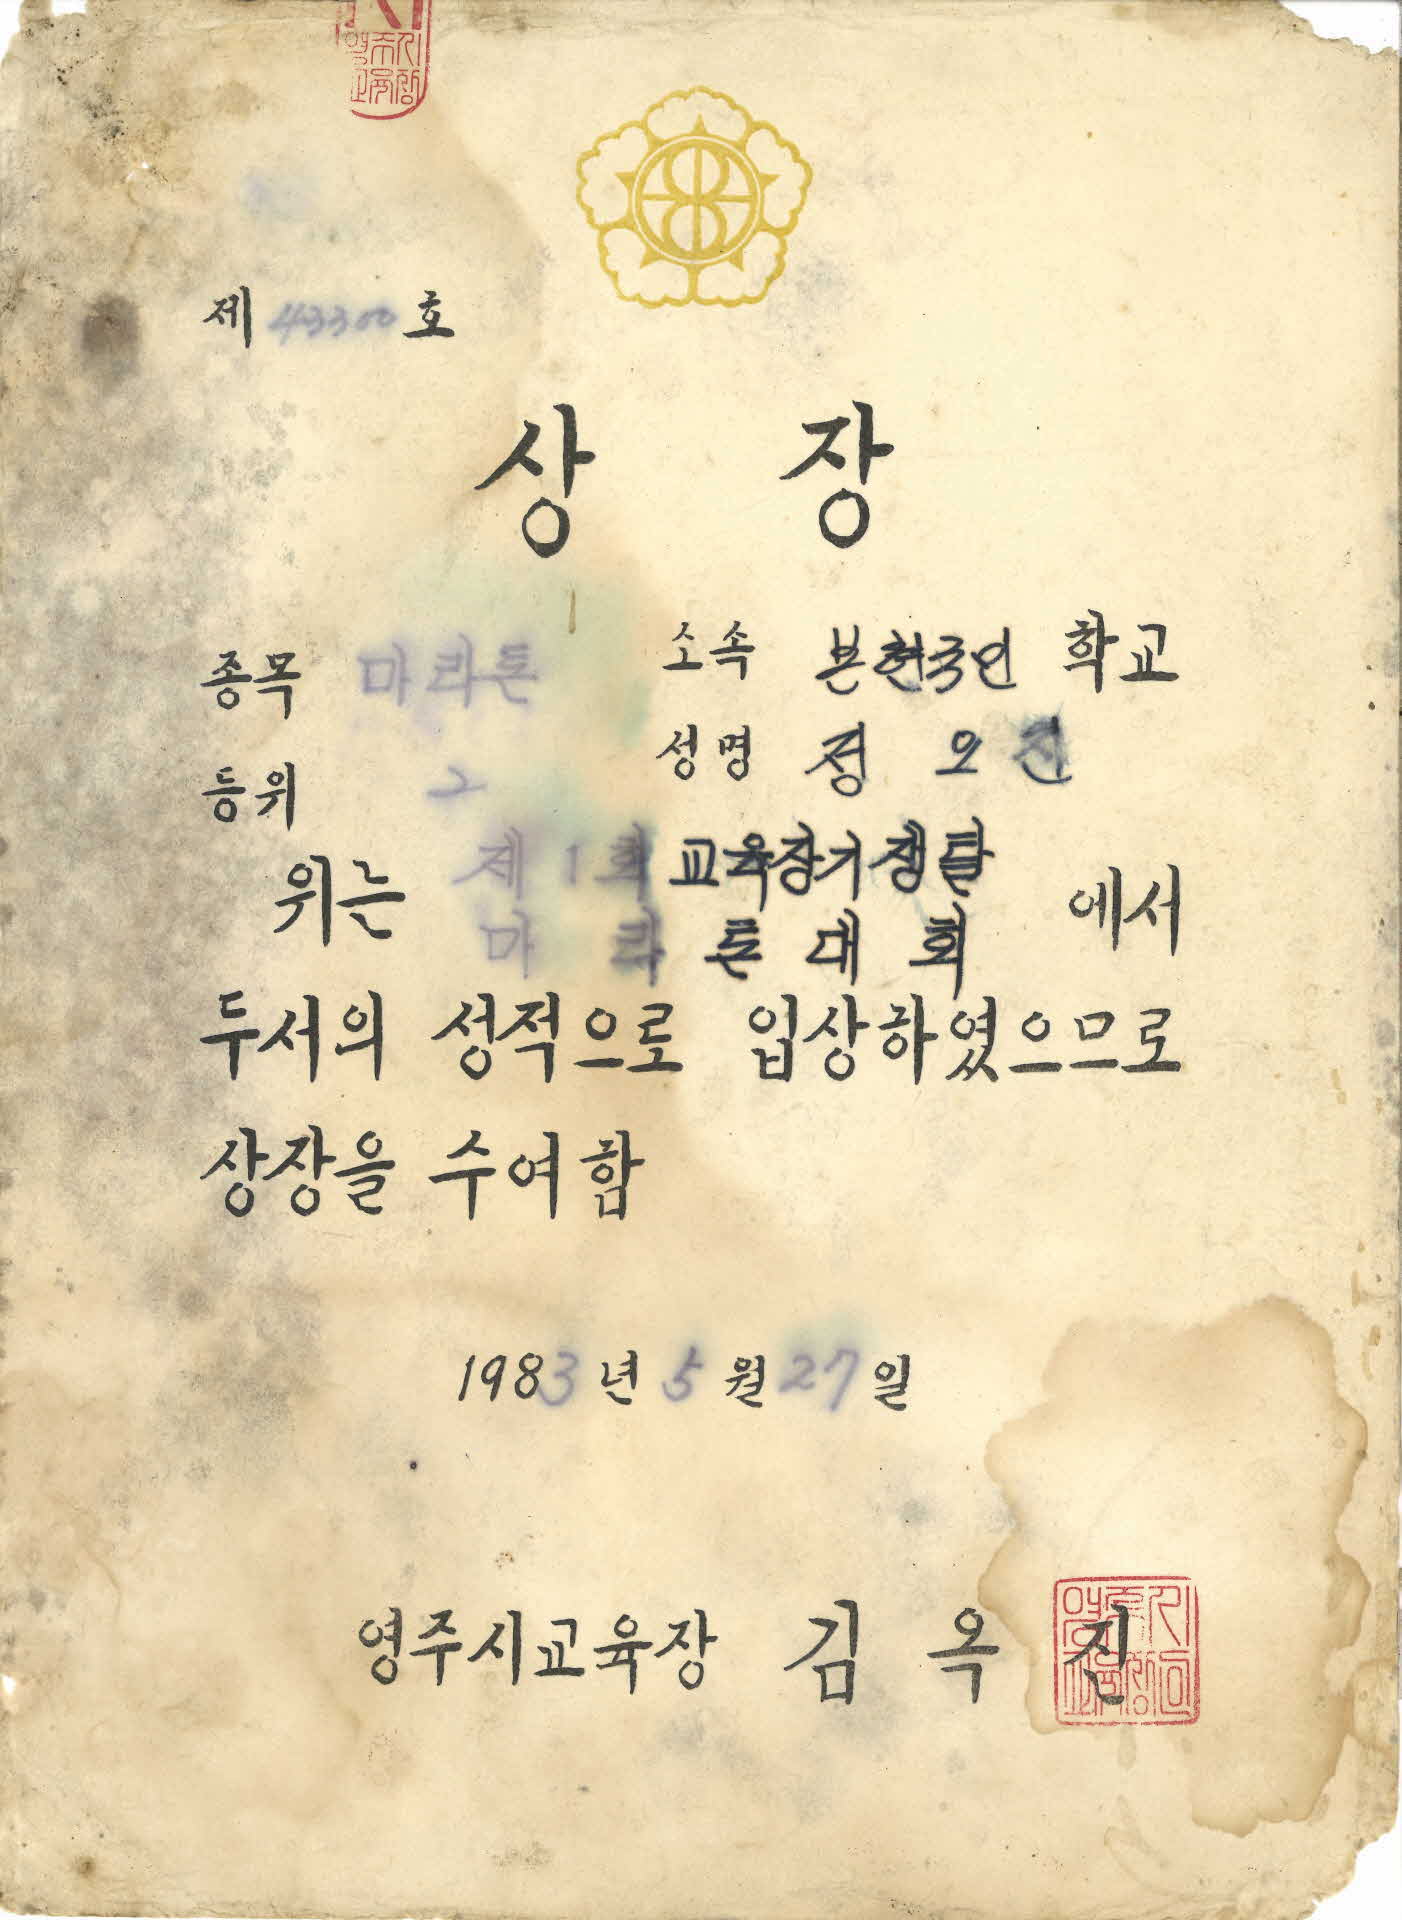 제 43300 호
상장
종목 마라톤 소속 본현국민 학교
등위 2 성명 정오진
위는 제1회 교육장기쟁탈 에서
마라톤대회
두서의 성적으로 입상하였으므로
상장을 수여함
1983년 5월 27일
영주시교육장 김옥진